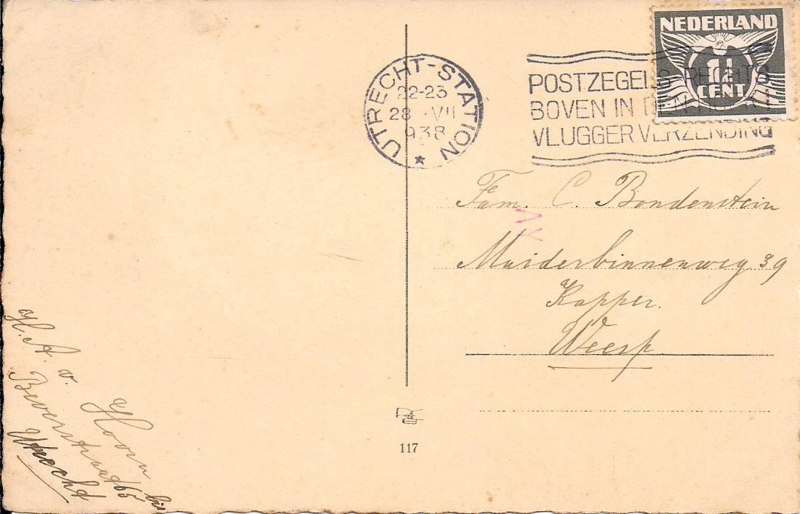 NEDERLAND
1½
CENT
UTRECHT-STATION
22-23
28 VII
938
POSTZEGELS RECHTS
BOVEN IN
VLUGGER VERZENDING
Fam. C. Bondenstein
Muiderbinnenweg 39
Kapper.
Weesp
H. A. v. Hoorn
Beverstraat 65 bis
Utrecht
117